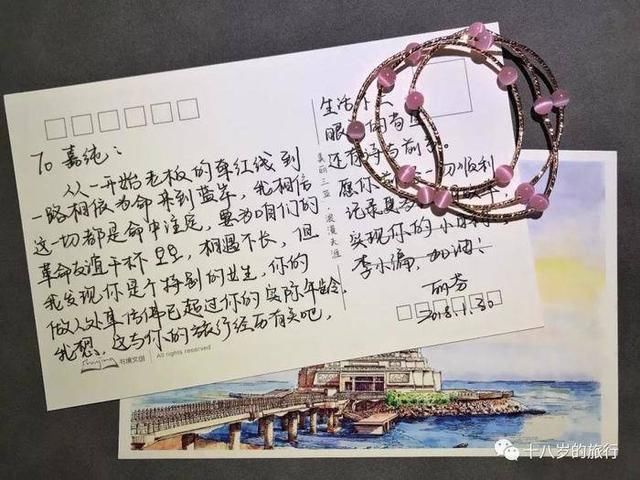 To 嘉纯:
从一开始老板的牵红线到
一路相依为命来到蓝岸,我相信
这一切都是命中注定,要为咱们的
革命友谊干杯 相遇不长,但
我发现你是个特别的女生,你的
做人处事仿佛已超过你的实际年龄,
我想,这与你的旅行经历有关吧,
书境文创
All rights reserved
美丽三亚·浪漫天涯
生活
眼
还有诗与前
愿你 一切顺利
记录
实现你的小目标,
李小编,加油!
丽芬
2018.1.30
十八岁的旅行